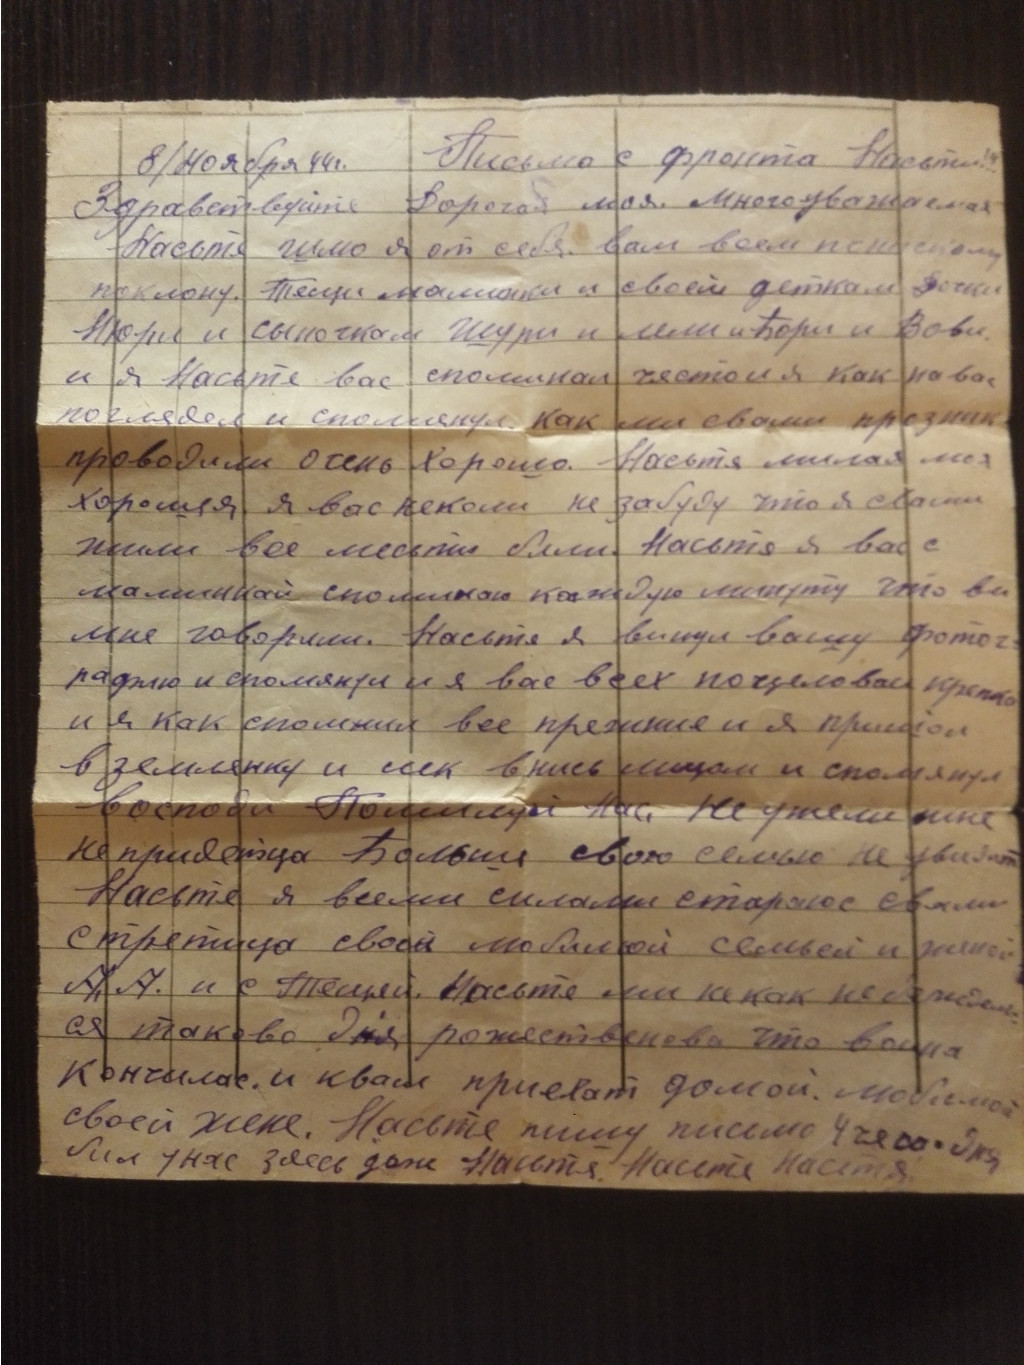 8/Ноября 44г. Письмо с фронта Насьти
Здравствуйте Дорогая моя. многоуважаемая
Насьтя шлю я от себя. вам всем по
поклону. Тещи маминки и своем деткам Дочки
Нюри и сыночкам Шури и лели и Бори и Вови.
и я Насьте вас споминал често и я как на вас
поглядел и спомянул. как ми свами празник
проводили очень хорошо. Насьтя милая моя
хорошея я вас неколи не забуду что я свами
жили все месьти были. Насьтя я вас с
маминкай споминаю каждую минуту что ви
мне говоряли. Насьтя я винул вашу фотог-
рафию и спомянул и я вас всех поцеловал крепко
и я как спомнил все прежние и я пришол
в землянку и лек внись лицом и спомянул
восподи Помилуй Нас. Неужели мне
непридетца Больше свою семью не увидать
Насьте я всеми силами стараюс свами
стретица своей любимой семьей и женой
А. А. и с Тещей. Насьте ми некак не
ся таково дня рожественова что война
кончилас. и квам приехат домой. любимой
своей жене. Насьте пишу письмо 4 чесо. Дня
бил унас здесь дош Насьтя. Насьтя Настя